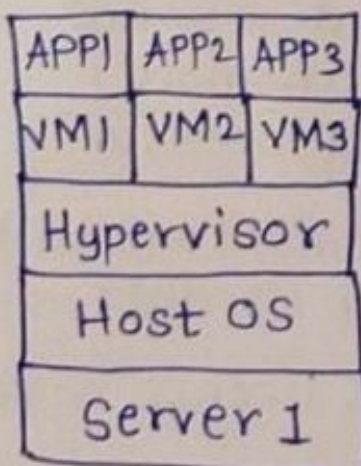 APP1 APP2 APP3
VM1 VM2 VM3
Hypervisor
Host OS
Server 1